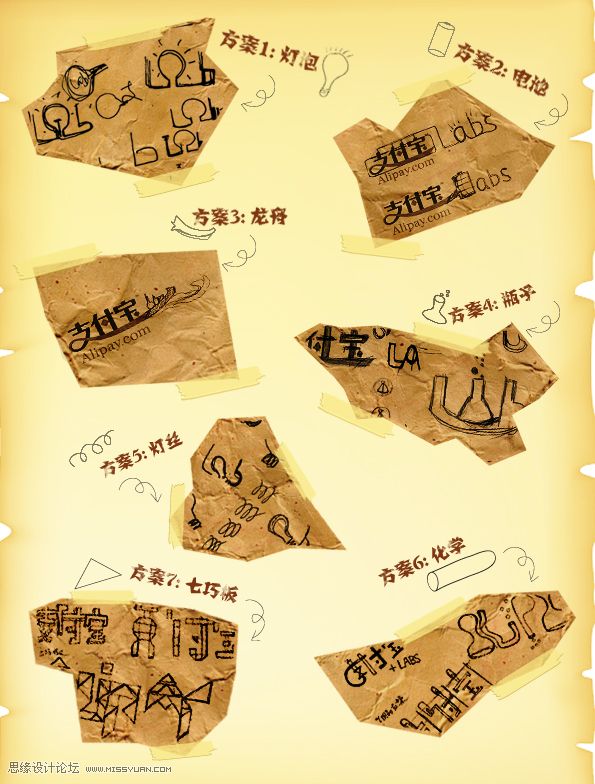 方案1: 灯泡
方案2: 电池
支付宝 Labs
Alipay.com
支付宝 Labs
Alipay.com
方案3: 龙舟
支付宝
Alipay.com
方案4: 瓶子
付宝 LA
方案5: 灯丝
方案6: 化学
方案7: 七巧板
+LABS
思缘设计论坛 WWW.MISSYUAN.COM